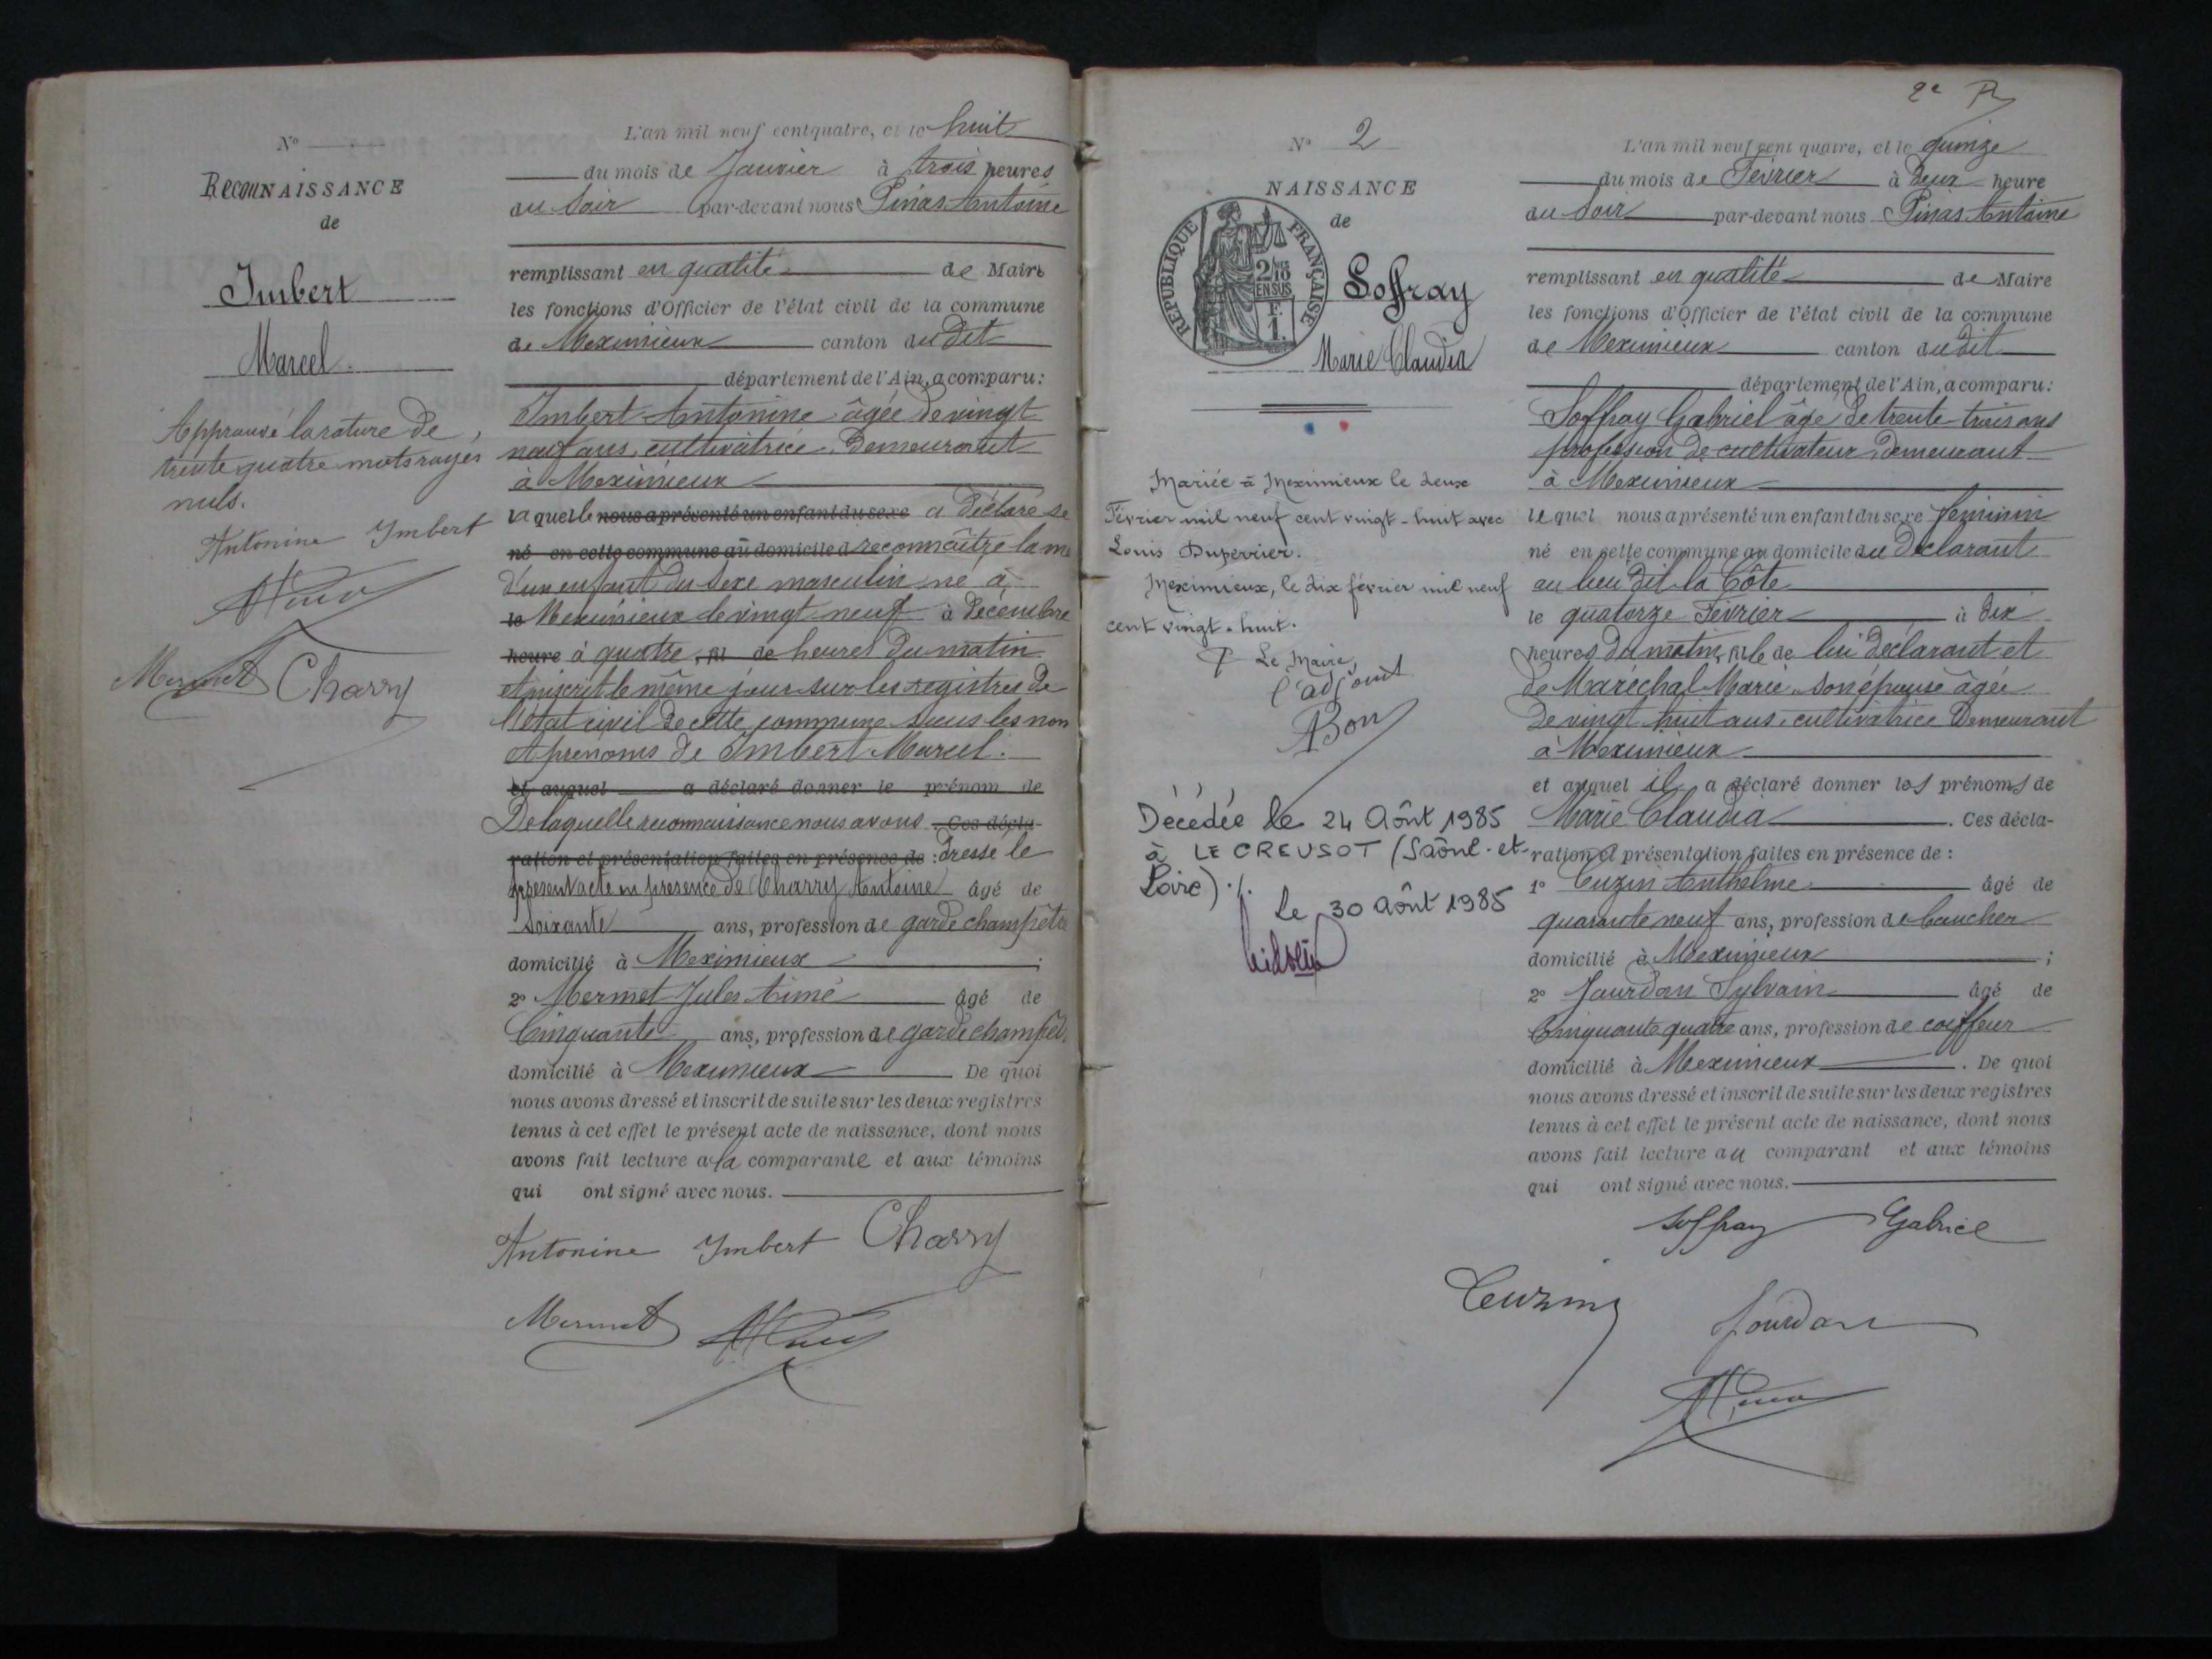 N°
RECONNAISSANCE
de
Imbert
Marcel.
Approuvé la rature de
trente quatre mots rayés
nuls.
Antonine Imbert
Mermet Charry
L'an mil neuf cent quatre, et le huit
du mois de Janvier à trois heures
du soir par-devant nous Pinas Antoine
remplissant en qualité de Maire
les fonctions d'Officier de l'état civil de la commune
de Meximieux canton du dit
département de l'Ain, a comparu :
Imbert Antonine âgée de vingt
neuf ans, cultivatrice, demeurant
à Meximieux
laquelle nous a présenté un enfant du sexe a déclaré se
né en cette commune au domicile d reconnaître la m
d'un enfant du sexe masculin né à
le Meximieux le vingt neuf à décembre
heure à quatre, fil de heures du matin
et inscrit le même jour sur les registres de
l'état civil de cette commune sous les nom
et prénoms de Imbert Marcel.
et auquel a déclaré donner le prénom de
De laquelle reconnaissance nous avons . Ces décla-
ration et présentation faites en présence de : dressé le
présent acte en présence de Charry Antoine âgé de
soixante ans, profession de garde champêtre
domicilié à Meximieux ;
2° Mermet Jules Aimé âgé de
Cinquante ans, profession de garde champêt.
domicilié à Meximieux De quoi
nous avons dressé et inscrit de suite sur les deux registres
tenus à cet effet le présent acte de naissance, dont nous
avons fait lecture a la comparante et aux témoins
qui ont signé avec nous.
Antonine Imbert Charry
Mermet
2e
N° 2
NAISSANCE
de
REPUBLIQUE FRANÇAISE
2/10
EN SUS
F.
1.
Soffray
Marie Claudia
Mariée à Meximieux le deux
Février mil neuf cent vingt-huit avec
Louis Duperrier.
Meximieux, le dix février mil neuf
cent vingt-huit.
P Le Maire,
l'adjoint
Bon
Décédée le 24 Août 1985
à LE CREUSOT (Saône-et-
Loire) ./.
le 30 Août 1985
L'an mil neuf cent quatre, et le quinze
du mois de Février à deux heure
du soir par-devant nous Pinas Antoine
remplissant en qualité de Maire
les fonctions d'Officier de l'état civil de la commune
de Meximieux canton du dit
département de l'Ain, a comparu :
Soffray Gabriel âgé de trente-trois ans
profession de cultivateur, demeurant
à Meximieux
lequel nous a présenté un enfant du sexe féminin
né en cette commune au domicile du déclarant
au lieu dit la Côte
le quatorze Février à dix
heures du matin, fille de lui déclarant et
de Maréchal Marie, son épouse âgée
de vingt huit ans, cultivatrice demeurant
à Meximieux
et auquel il a déclaré donner les prénoms de
Marie Claudia . Ces décla-
ration et présentation faites en présence de :
1° Cuzin Anthelme âgé de
quarante neuf ans, profession de boucher
domicilié à Meximieux ;
2° Jourdan Sylvain âgé de
Cinquante quatre ans, profession de coiffeur
domicilié à Meximieux . De quoi
nous avons dressé et inscrit de suite sur les deux registres
tenus à cet effet le présent acte de naissance, dont nous
avons fait lecture au comparant et aux témoins
qui ont signé avec nous.
Soffray Gabriel
Cuzin
Jourdan